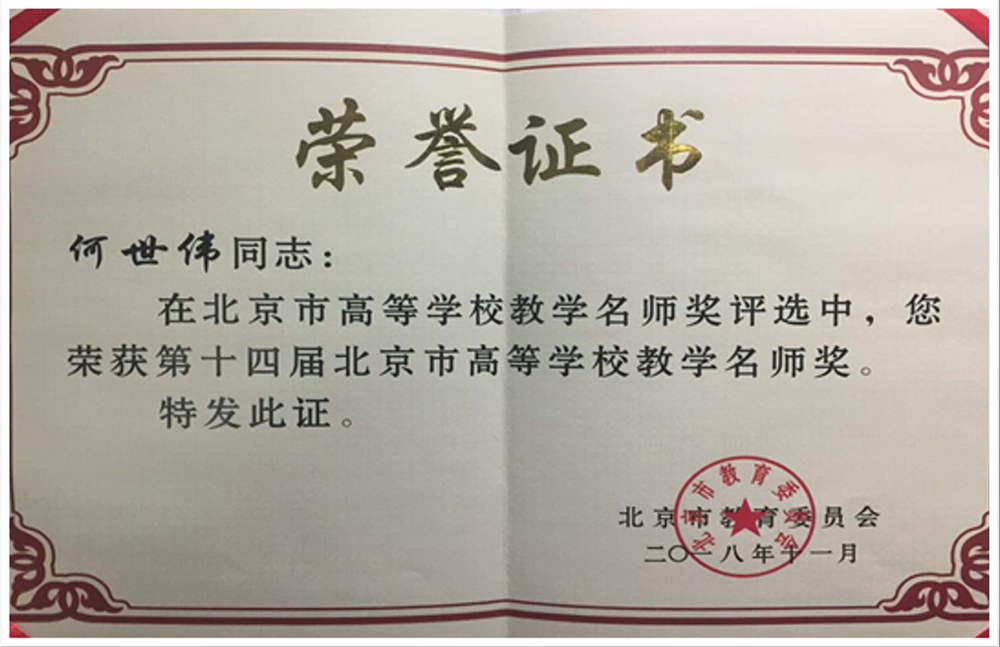 荣誉证书
何世伟同志：
在北京市高等学校教学名师奖评选中，您
荣获第十四届北京市高等学校教学名师奖。
特发此证。
北京市教育委员会
北京市教育委员会
二〇一八年十一月